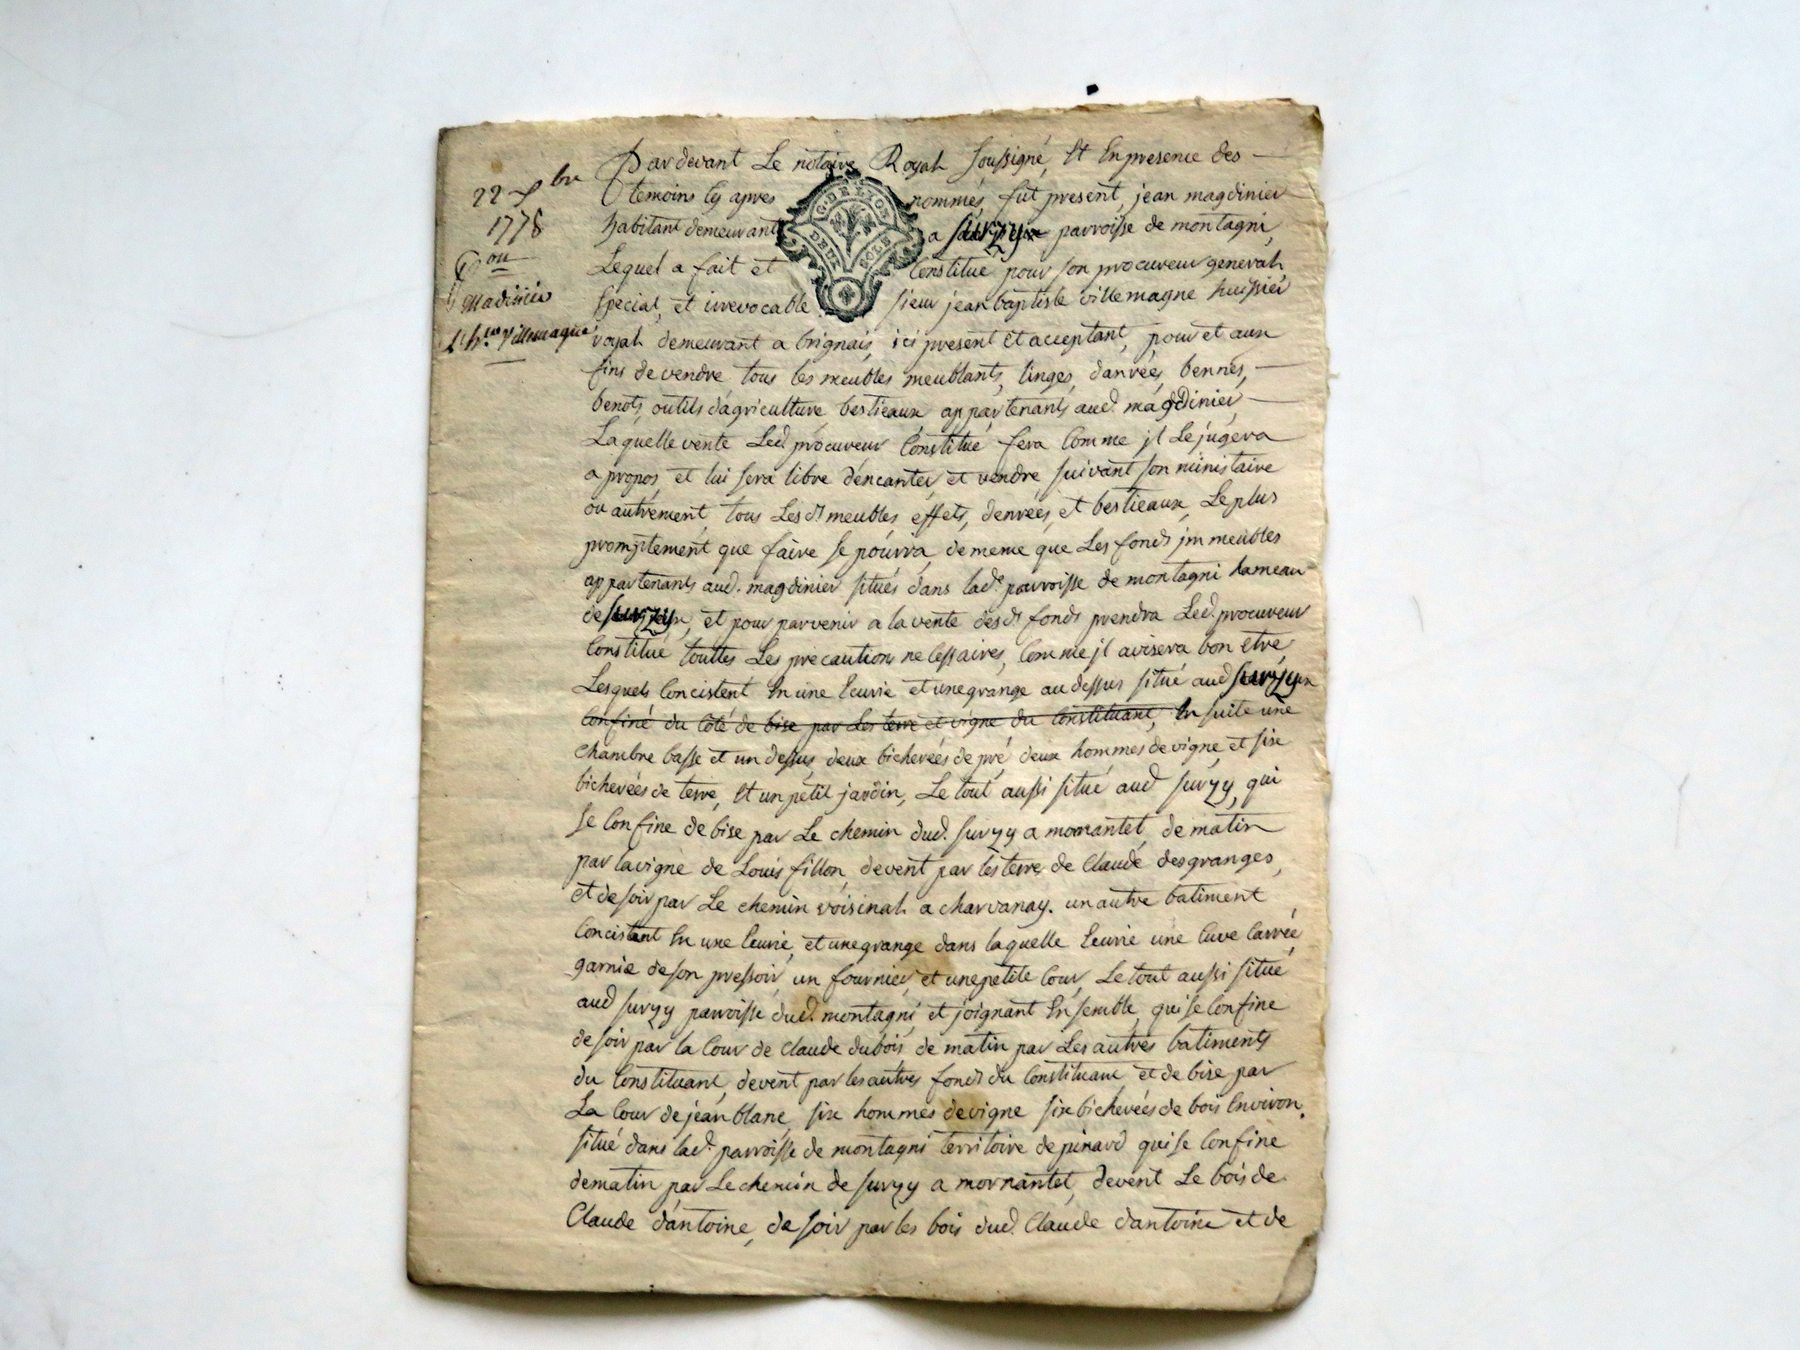 22 7bre
1778
Pon
Madinier
Villemagne
Pardevant Le notaire Royal soussigné, Et En presence des
temoins cy apres nommés, fut present, jean magdinier
habitant demeurant a surzy parroisse de montagni,
Lequel a fait et Constitué pour son procureur general,
special, et irrevocable sieur jean baptiste villemagne huissier
royal demeurant a brignais, ici present Et acceptant, pour et aux
fins de vendre tous les meubles meublants, linges, danrées, bennes,
benots, outils d'agriculture, bestieaux appartenants aud. magdinier,
Laquelle vente Led. procureur Constitué fera Comme jl Le jugera
a propos, et lui sera libre d'encanter, et vendre, suivant son ministaire
ou autrement, tous Les ds meubles, effets, denrées, et bestieaux, Le plus
promptement que faire se pourra, de meme que Les fonds jmmeubles
appartenants aud. magdinier situés dans lade. parroisse de montagni hameau
de surzy, et pour parvenir a la vente desds fonds prendra Led. procureur
Constitué touttes Les precautions necessaires, Comme jl avisera bon Etre,
Lesquels Concistent En une Ecurie et une grange au dessus situé aud surzy
Confiné du Côté de bise par Les terre et vigne du Constituant, En suite une
chambre basse et un dessus deux bicherées de pré deux hommes de vigne, et six
bicherées de terre, Et un petit jardin, Le tout aussi situé aud surzy, qui
se Confine de bise par Le chemin dud. surzy a mornantet, de matin
par la vigne de Louis fillon, de vent par les terre de Claude desgranges,
et de soir par Le chemin voisinal a charvanay. un autre batiment
Concistant En une Ecurie, et une grange dans laquelle Ecurie une Cuve Carrée
garnie de son pressoir, un fournier, et une petite Cour, Le tout aussi situé
aud surzy parroisse dud. montagni, et joignant Ensemble, qui se Confine
de soir par la Cour de Claude dubois, de matin par Les autres batiments
du Constituant, de vent par les autres fonds du Constituant, et de bise par
La Cour de jean blanc, six hommes de vigne six bicherées de bois Environ.
situé dans lad. parroisse de montagni territoire de pinard qui se Confine
de matin par Le chemin de surzy a mornantet, de vent Le bois de
Claude dantoine, de soir par les bois dud. Claude dantoine et de
G. DE LYON
DEUX SOLS